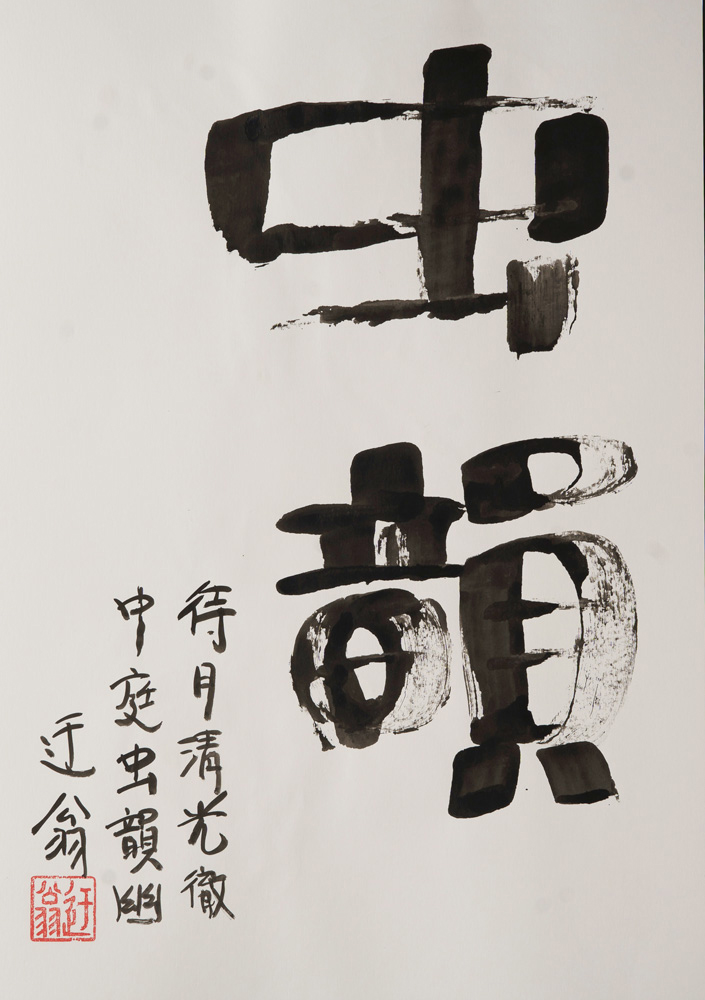 虫韻
待月清光徹
中庭虫韻幽
迂翁
迂翁